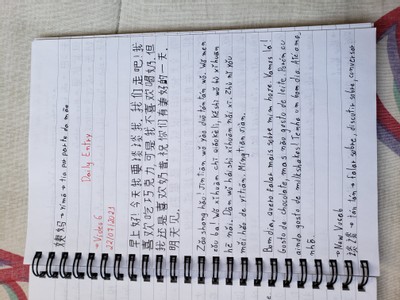 姨妈 → Yímā → Tia por parte da mãe
Daily Entry
→ Video 6
22/07/2023
早上好!今天我要谈谈我。我们走吧!我
喜欢吃巧克力,可是我不喜欢喝奶。但
我还是喜欢奶昔。祝你们有美好的一天。
明天见。
Zǎo shang hǎo! Jīn tiān wǒ yào duō tán tán wǒ. Wǒ men
zǒu ba! Wǒ xǐhuān chī qiǎokèlì, Kě shì wǒ bù xǐhuān
hē nǎi. Dàn wǒ hái shì xǐhuān nǎi xī. Zhù nǐ yǒu
měi hǎo de yī tiān. Míng tiān jiàn.
Bom dia, quero falar mais sobre mim hoje. Vamos lá!
Gosto de chocolate, mas não gosto de leite. Porém eu
ainda gosto de milkshakes! Tenha um bom dia. Até ama-
nhã.
→ New Vocab
谈谈 → Tán tán → falar sobre, discutir sobre, conversar